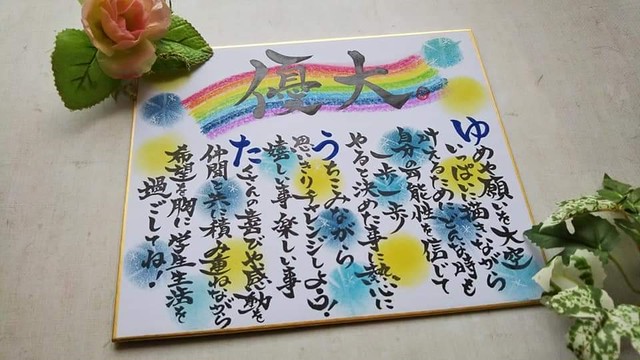 優大。
ゆめや願いを大空
いっぱいに描きながら
叶えるためどんな時も
自分の可能性を信じて
一歩一歩!
やると決めた事に熱心に
うちこみながら
思いきりチャレンジしよう!
嬉しい事楽しい事
たくさんの喜びや感動を
仲間と共に積み重ねながら
希望を胸に学生生活を
過ごしてね!